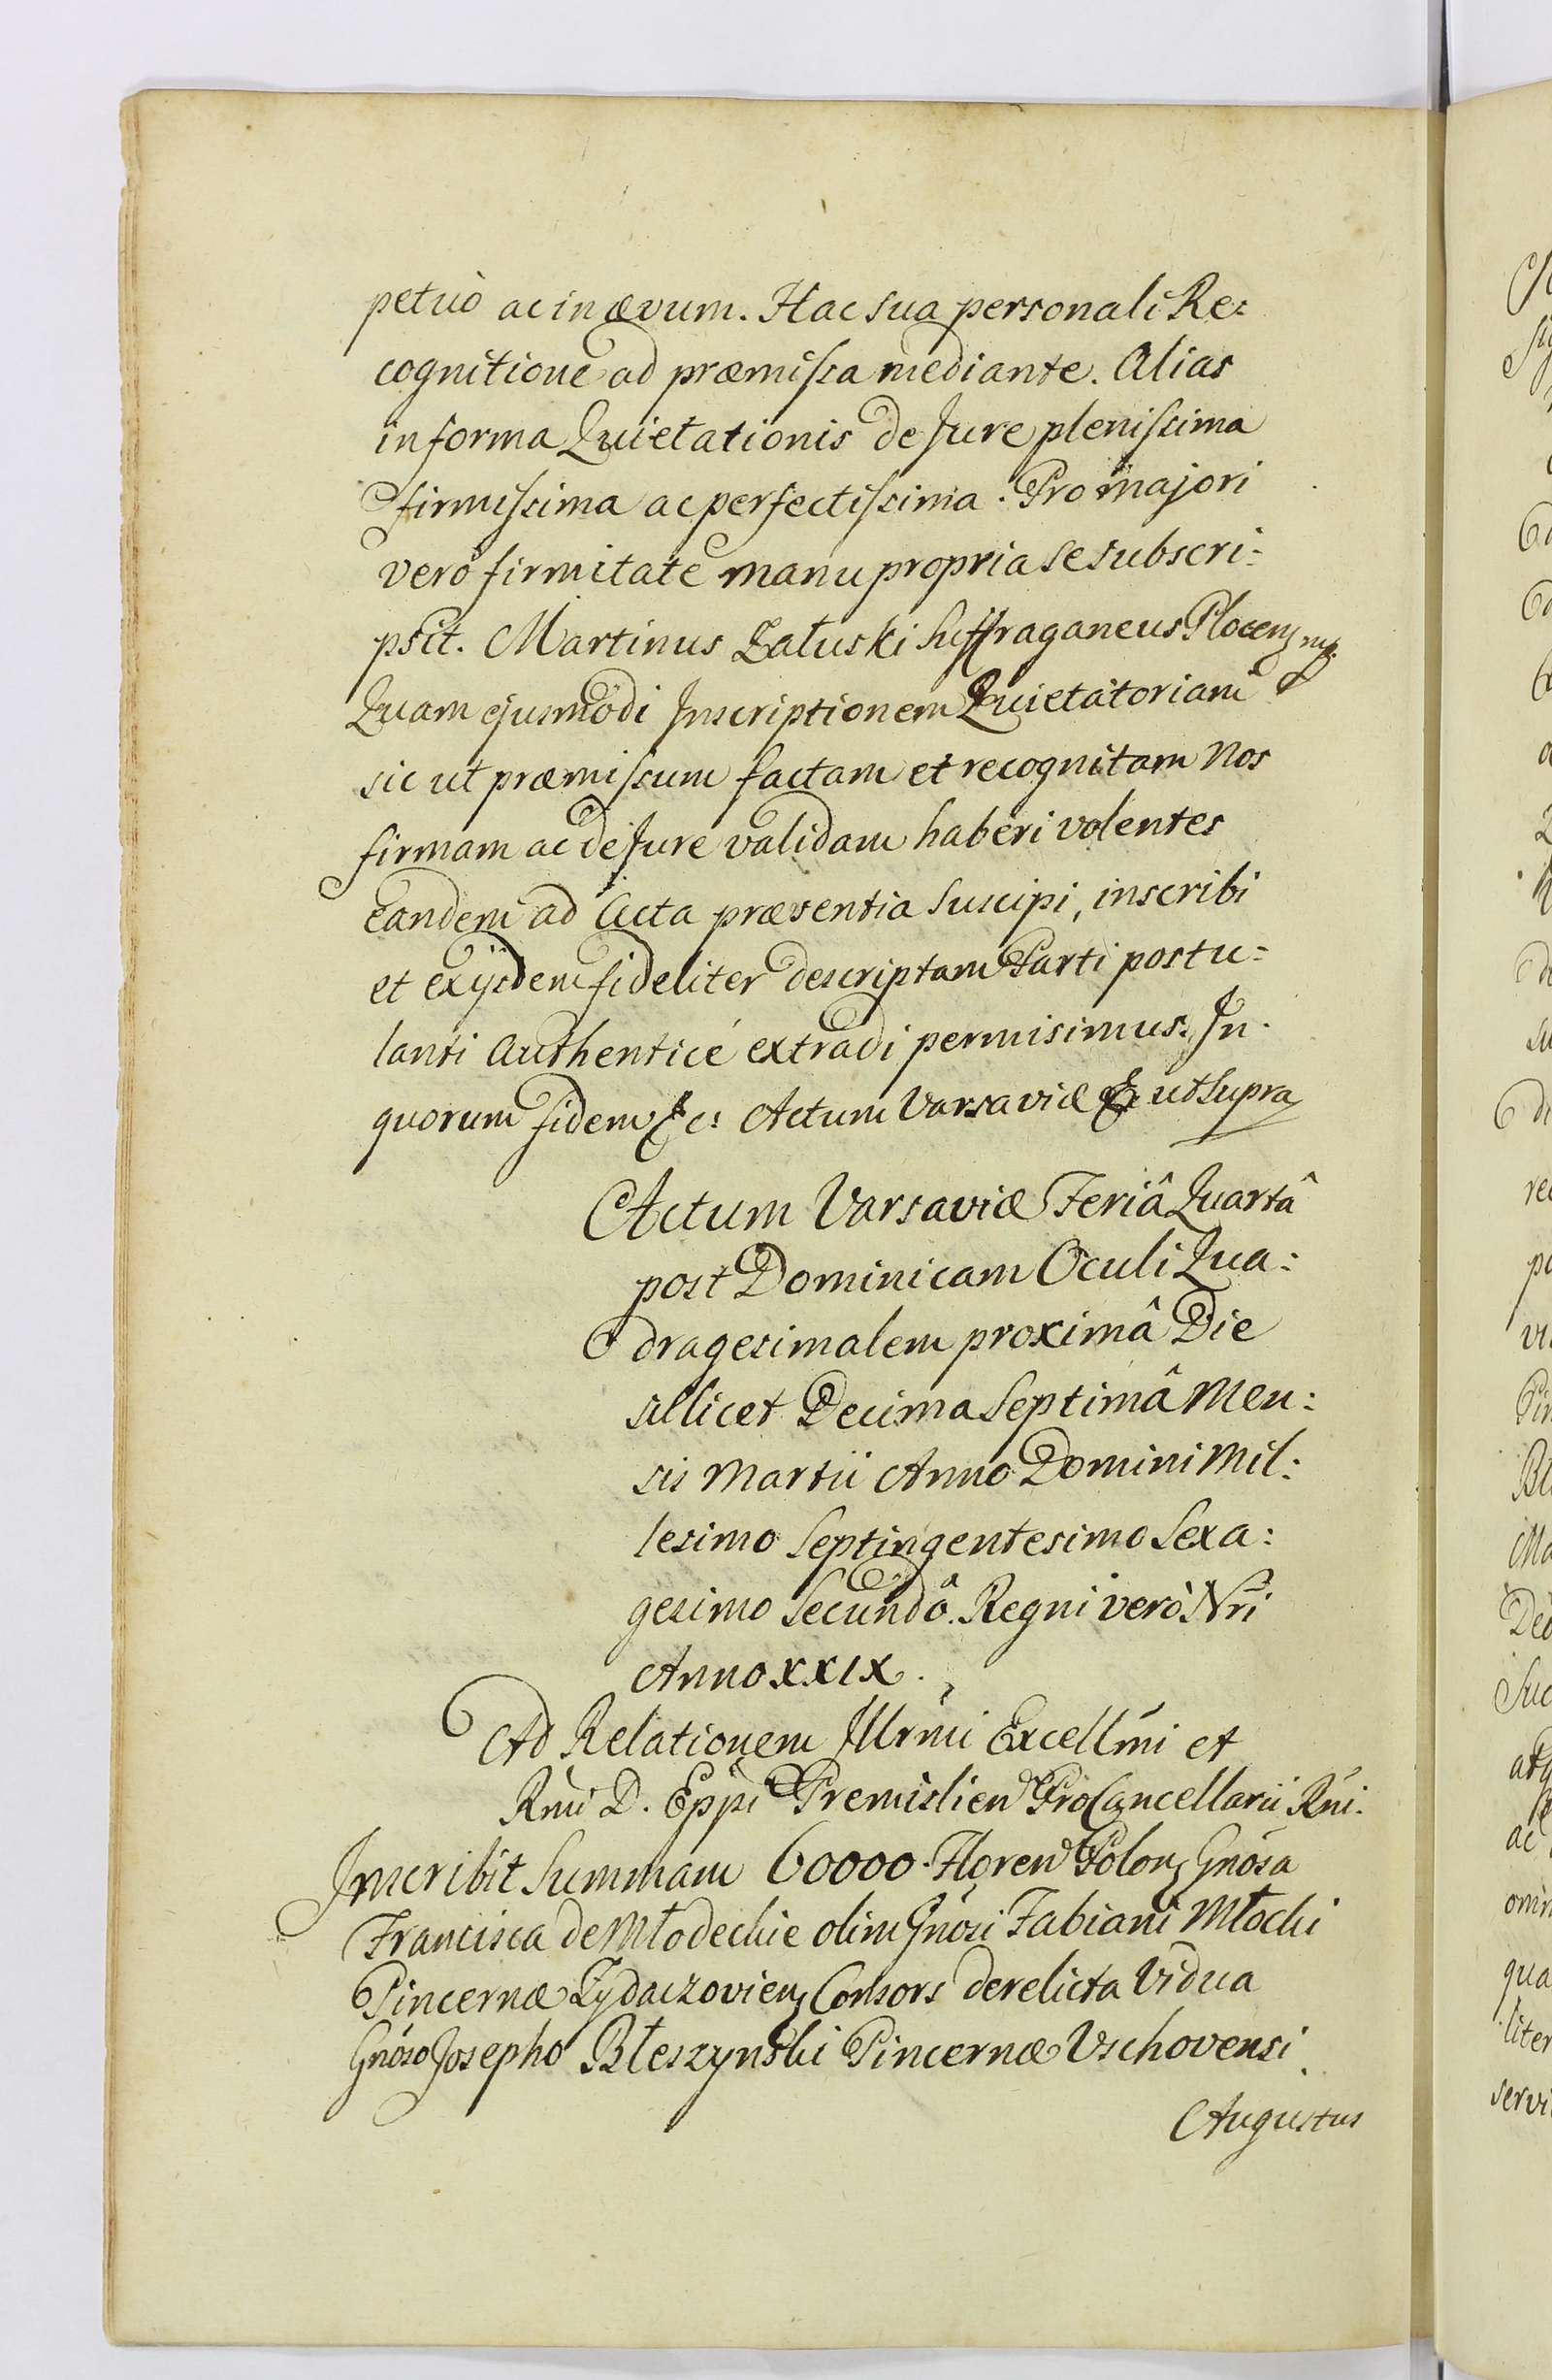 petuò ac in ævum. Hac sua personali Re=
cognitione ad præmissa mediante. Alias
in forma Quietationis de Jure plenissima
firmissima ac perfectissima. Pro majori
verò firmitate manu propria se subscri=
psit. Martinus Załuski Suffraganeus Plocen mp.
Quam ejusmodi Inscriptionem Quietatoriam
sic ut præmissum factam et recognitam Nos
firmam ac de Jure validam haberi volentes
eandem ad Acta præsentia suscipi, inscribi
et ex ijsdem fideliter descriptam Parti postu=
lanti Authenticé extradi permisimus. In
quorum fidem &c: Actum Varsaviæ & ut supra
Actum Varsaviæ Feriâ Quartâ
post Dominicam Oculi Qua:
dragesimalem proximâ Die
scilicet Decima Septimâ Men:
sis Martii Anno Domini Mil:
lesimo Septingentesimo Sexa:
gesimo Secundô. Regni verò Nri
Anno XXIX.
Ad Relationem Illrmi Excellmi et
Rmi D. Eppi Premislien ProCancellarii Rni.
Inscribit Summam 60000. Floren Polon Gnosa
Francisca de Młodeckie olim Gnosi Fabiani Młocki
Pincernæ Zydaczovien Consors derelicta Vidua
Gnoso Josepho Błeszynski Pincernæ Vschovensi
Augustus